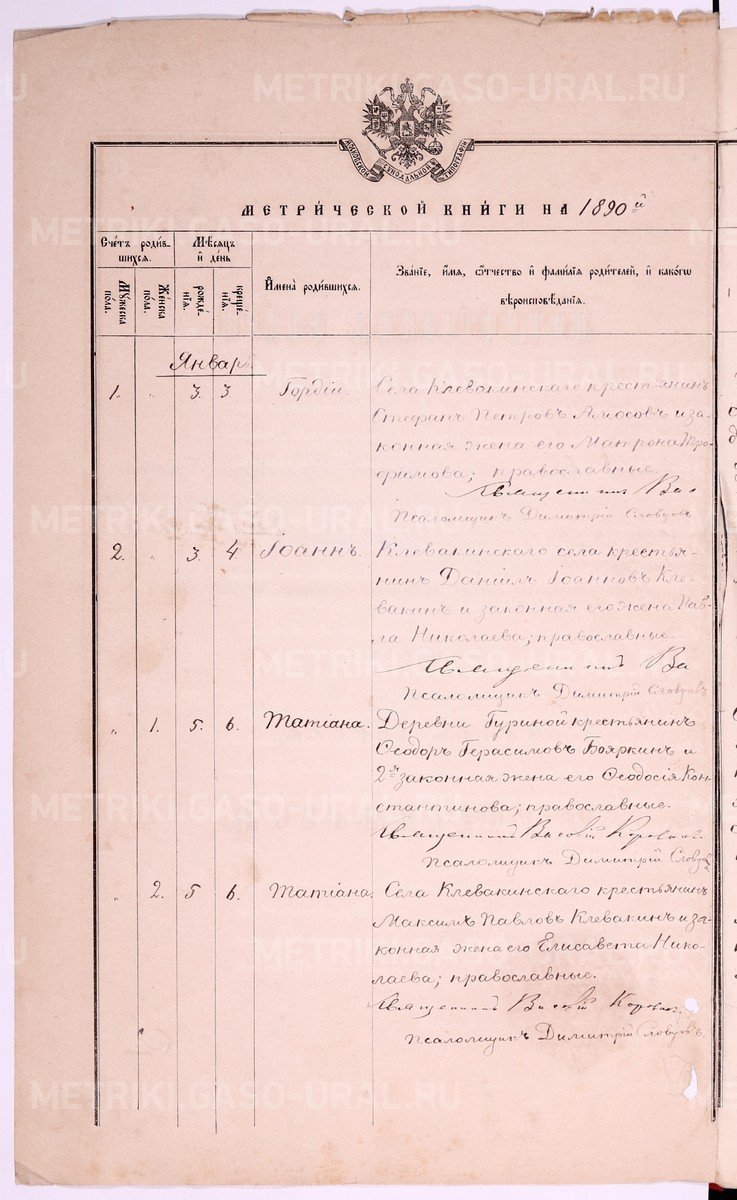 МОСКОВСКОЙ СѴНОДАЛЬНОЙ ТИПОГРАФІИ
МЕТРИ́ЧЕСКОЙ КНИ́ГИ НА 1890й
Сче́тъ роди́в-
шихся.
Мѣ́сяцъ
и҆ де́нь
И҆мена̀ роди́вшихся.
Зва́нїе, и҆́мя, ѻ҆́тчество и҆ фами́лїя роди́телей, и҆ како́гѡ
вѣроисповѣ́данїя.
Мꙋ́жеска по́ла.
Же́нска по́ла.
рожде́-нїя.
креще́-нїя.
Январь
1. " 3. 3 Гордій. Села Клевакинскаго крестьянинъ
Стефанъ Петровъ Амосовъ и за-
конная жена его Матрона Тро-
фимова; православные.
Священникъ Ва
Псаломщикъ Димитрій Словцовъ
2. " 3. 4 Іоаннъ. Клевакинскаго села крестья-
нинъ Даніилъ Іоанновъ Кле-
вакинъ и законная его жена Пав-
ла Николаева; православные.
Священникъ Ва
Псаломщикъ Димитрій Словцовъ
" 1. 5. 6. Татіана. Деревни Гуриной крестьянинъ
Ѳеодоръ Герасимовъ Бояркинъ и
2я законная жена его Ѳеодосія Кон-
стантинова; православные.
Священникъ Василій
Псаломщикъ Димитрій Словцовъ
" 2. 5 6. Татіана. Села Клевакинскаго крестьянинъ
Максимъ Павловъ Клевакинъ и за-
конная жена его Елисавета Нико-
лаева; православные.
Священникъ Василій
Псаломщикъ Димитрій Словцовъ.
METRIKI.GASO-URAL.RU